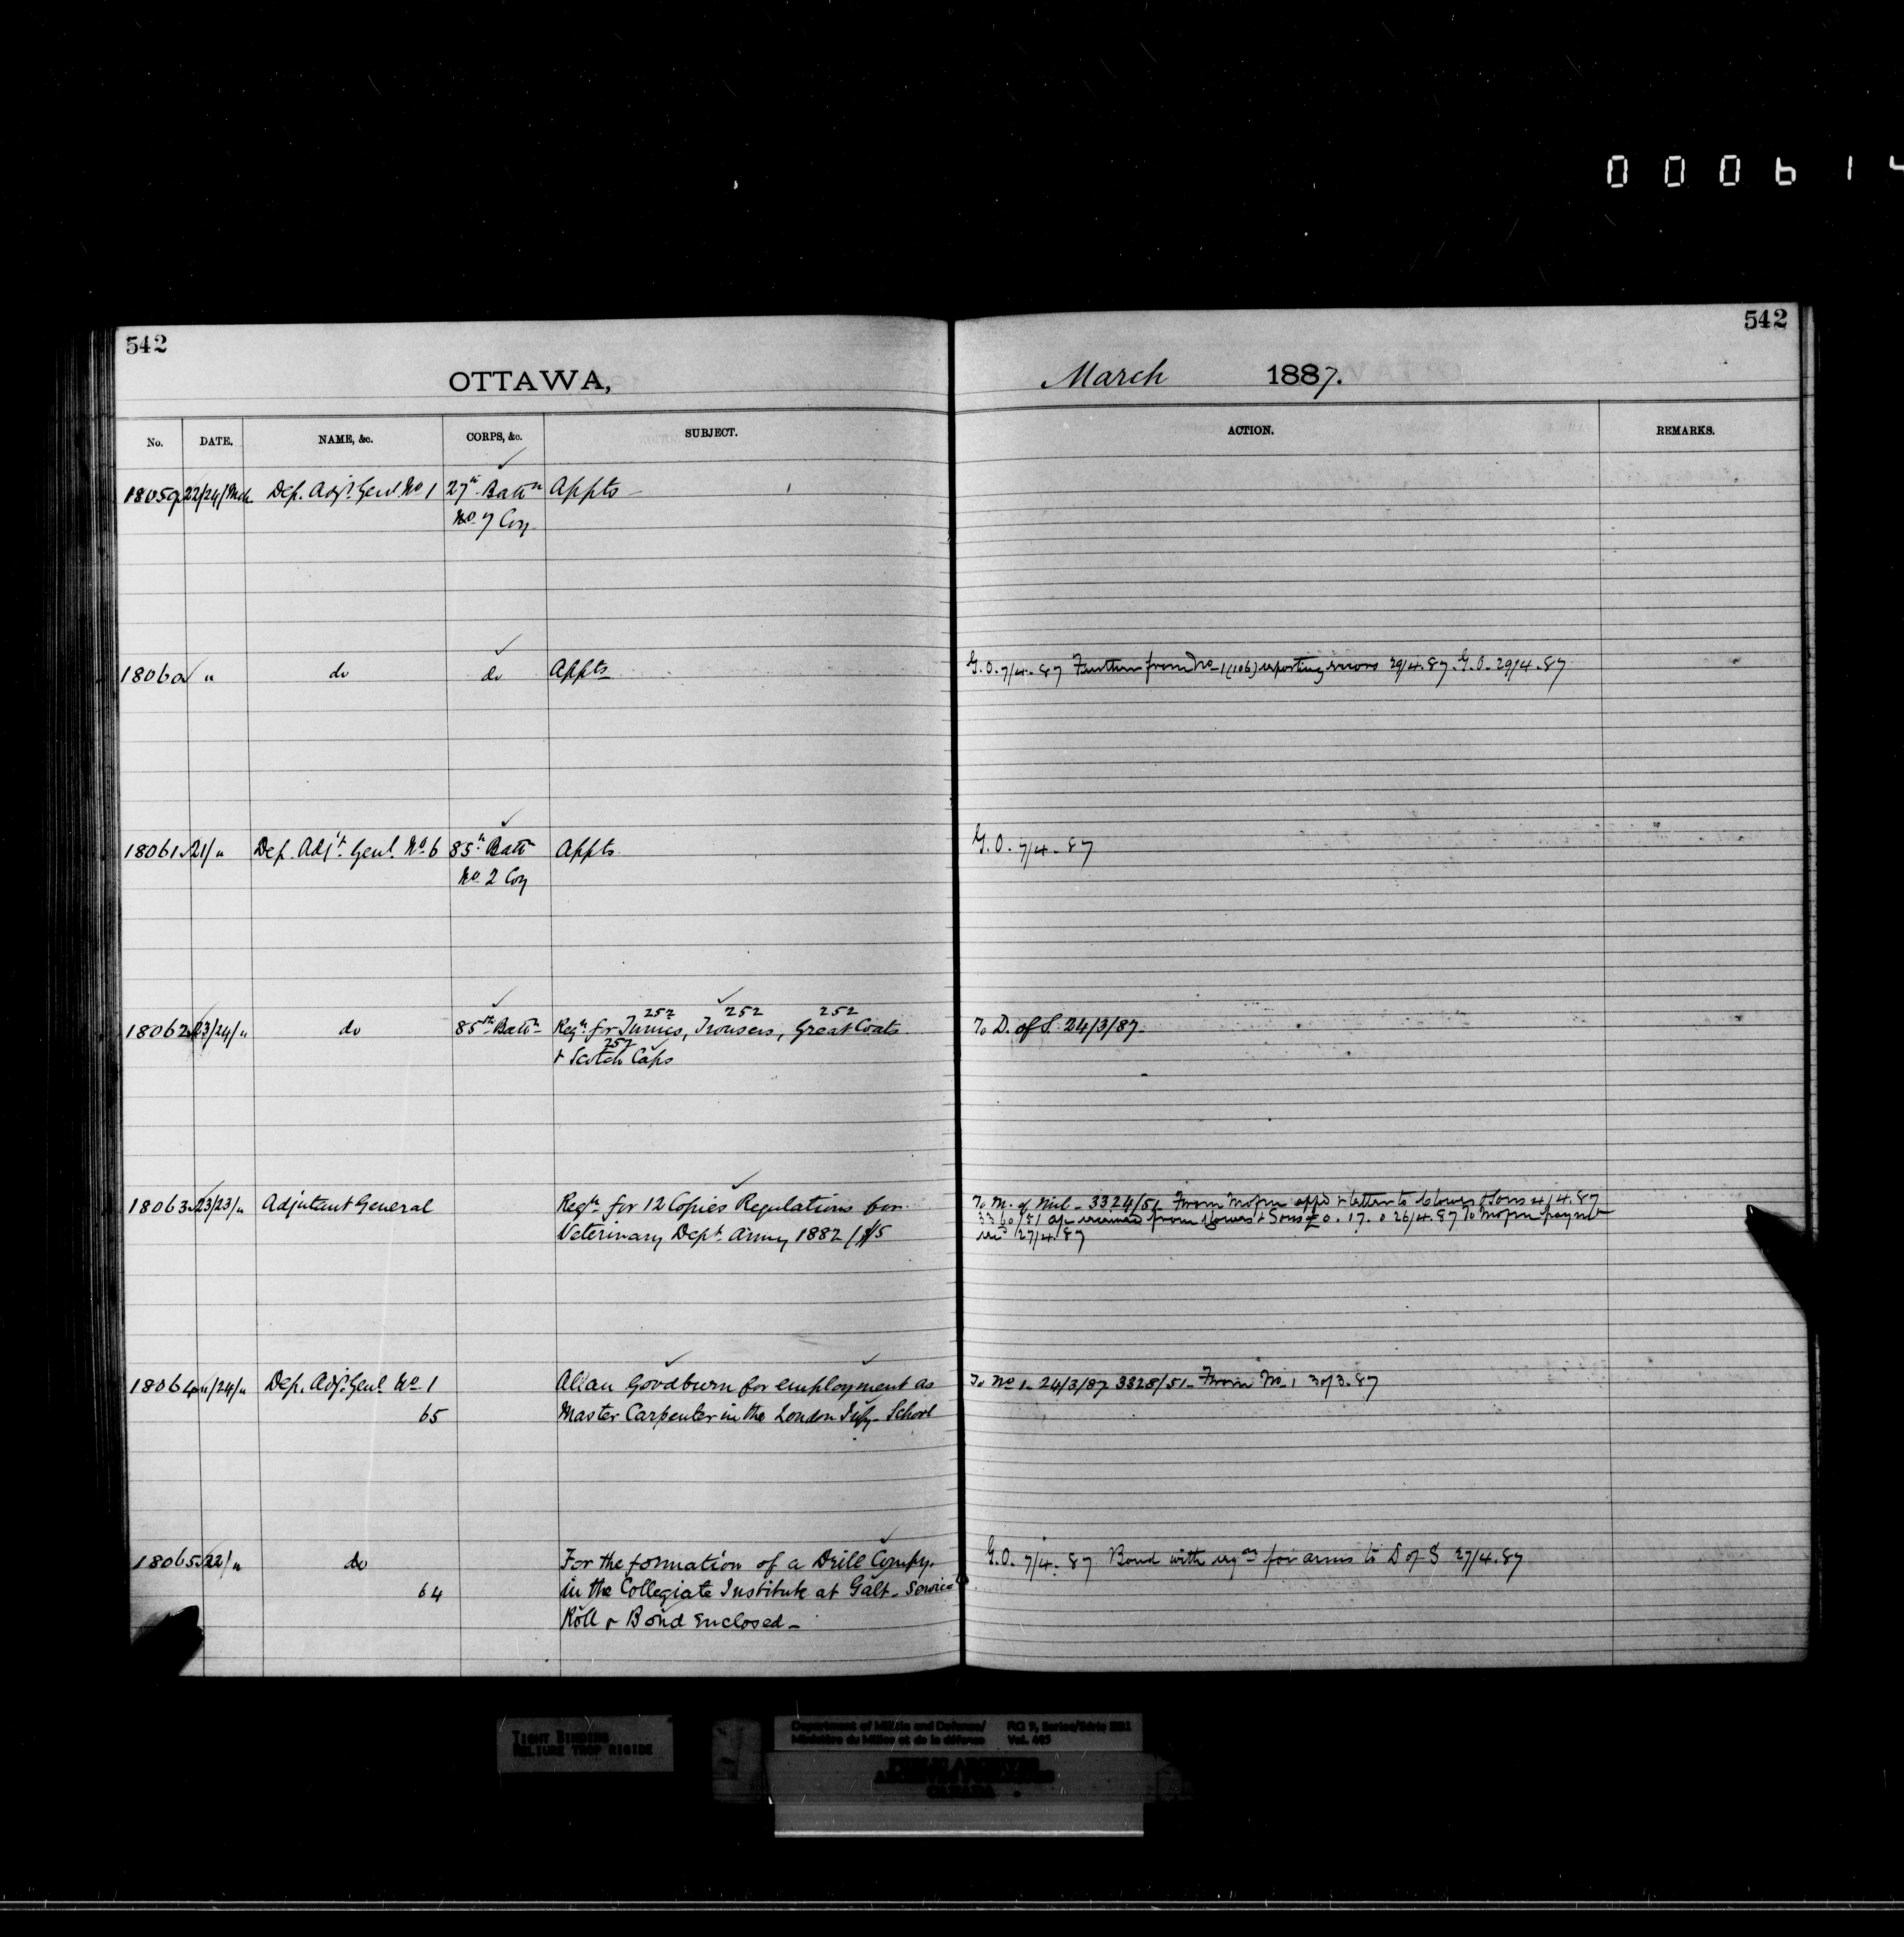 000614
542
542
OTTAWA,
March 1887.
No. DATE. NAME, &c. CORPS, &c. SUBJECT. ACTION. REMARKS.
18059 22/24/Mch Dep. Adjt. Genl. No 1 27th Battn Appts
No 7 Coy
18060 " do do Appts G.O. 7/4.87 Further from No 1 (106) reporting errors 29/4.87. G.O. 29/4.87
18061 21/" Dep. Adjt. Genl. No 6 85th Battn Appts G.O. 7/4.87
No 2 Coy
252 252 252
18062 23/24/" do 85th Battn Reqn for Tunics, Trousers, Great Coats To D. of S. 24/3/87.
252
& Scotch Caps
18063 23/23/" Adjutant General Reqn for 12 Copies Regulations for To M. of Mil - 3324/51 From appd & letter to Clowes & Sons 4/4.87
Veterinary Dept. Army 1882 3360/51 received from Clowes & Sons £0.17.0 26/4.87 To
27/4.87
18064 "/24/" Dep. Adjt. Genl. No 1 Allan Goodburn for employment as To No 1 - 24/3/87 3328/51 - From No 1 30/3.87
65 Master Carpenter in the London Infy. School
18065 22/" do For the formation of a Drill Compy. G.O. 7/4.87 Bond with reqn for arms to D of S 27/4.87
64 in the Collegiate Institute at Galt - Service
Roll & Bond enclosed -
TIGHT BINDING
RELIURE TROP RIGIDE
Department of Militia and Defence/ RG 9, Series/Série
Ministère du Milice et de la défense Vol.
PUBLIC ARCHIVES
ARCHIVES PUBLIQUES
CANADA